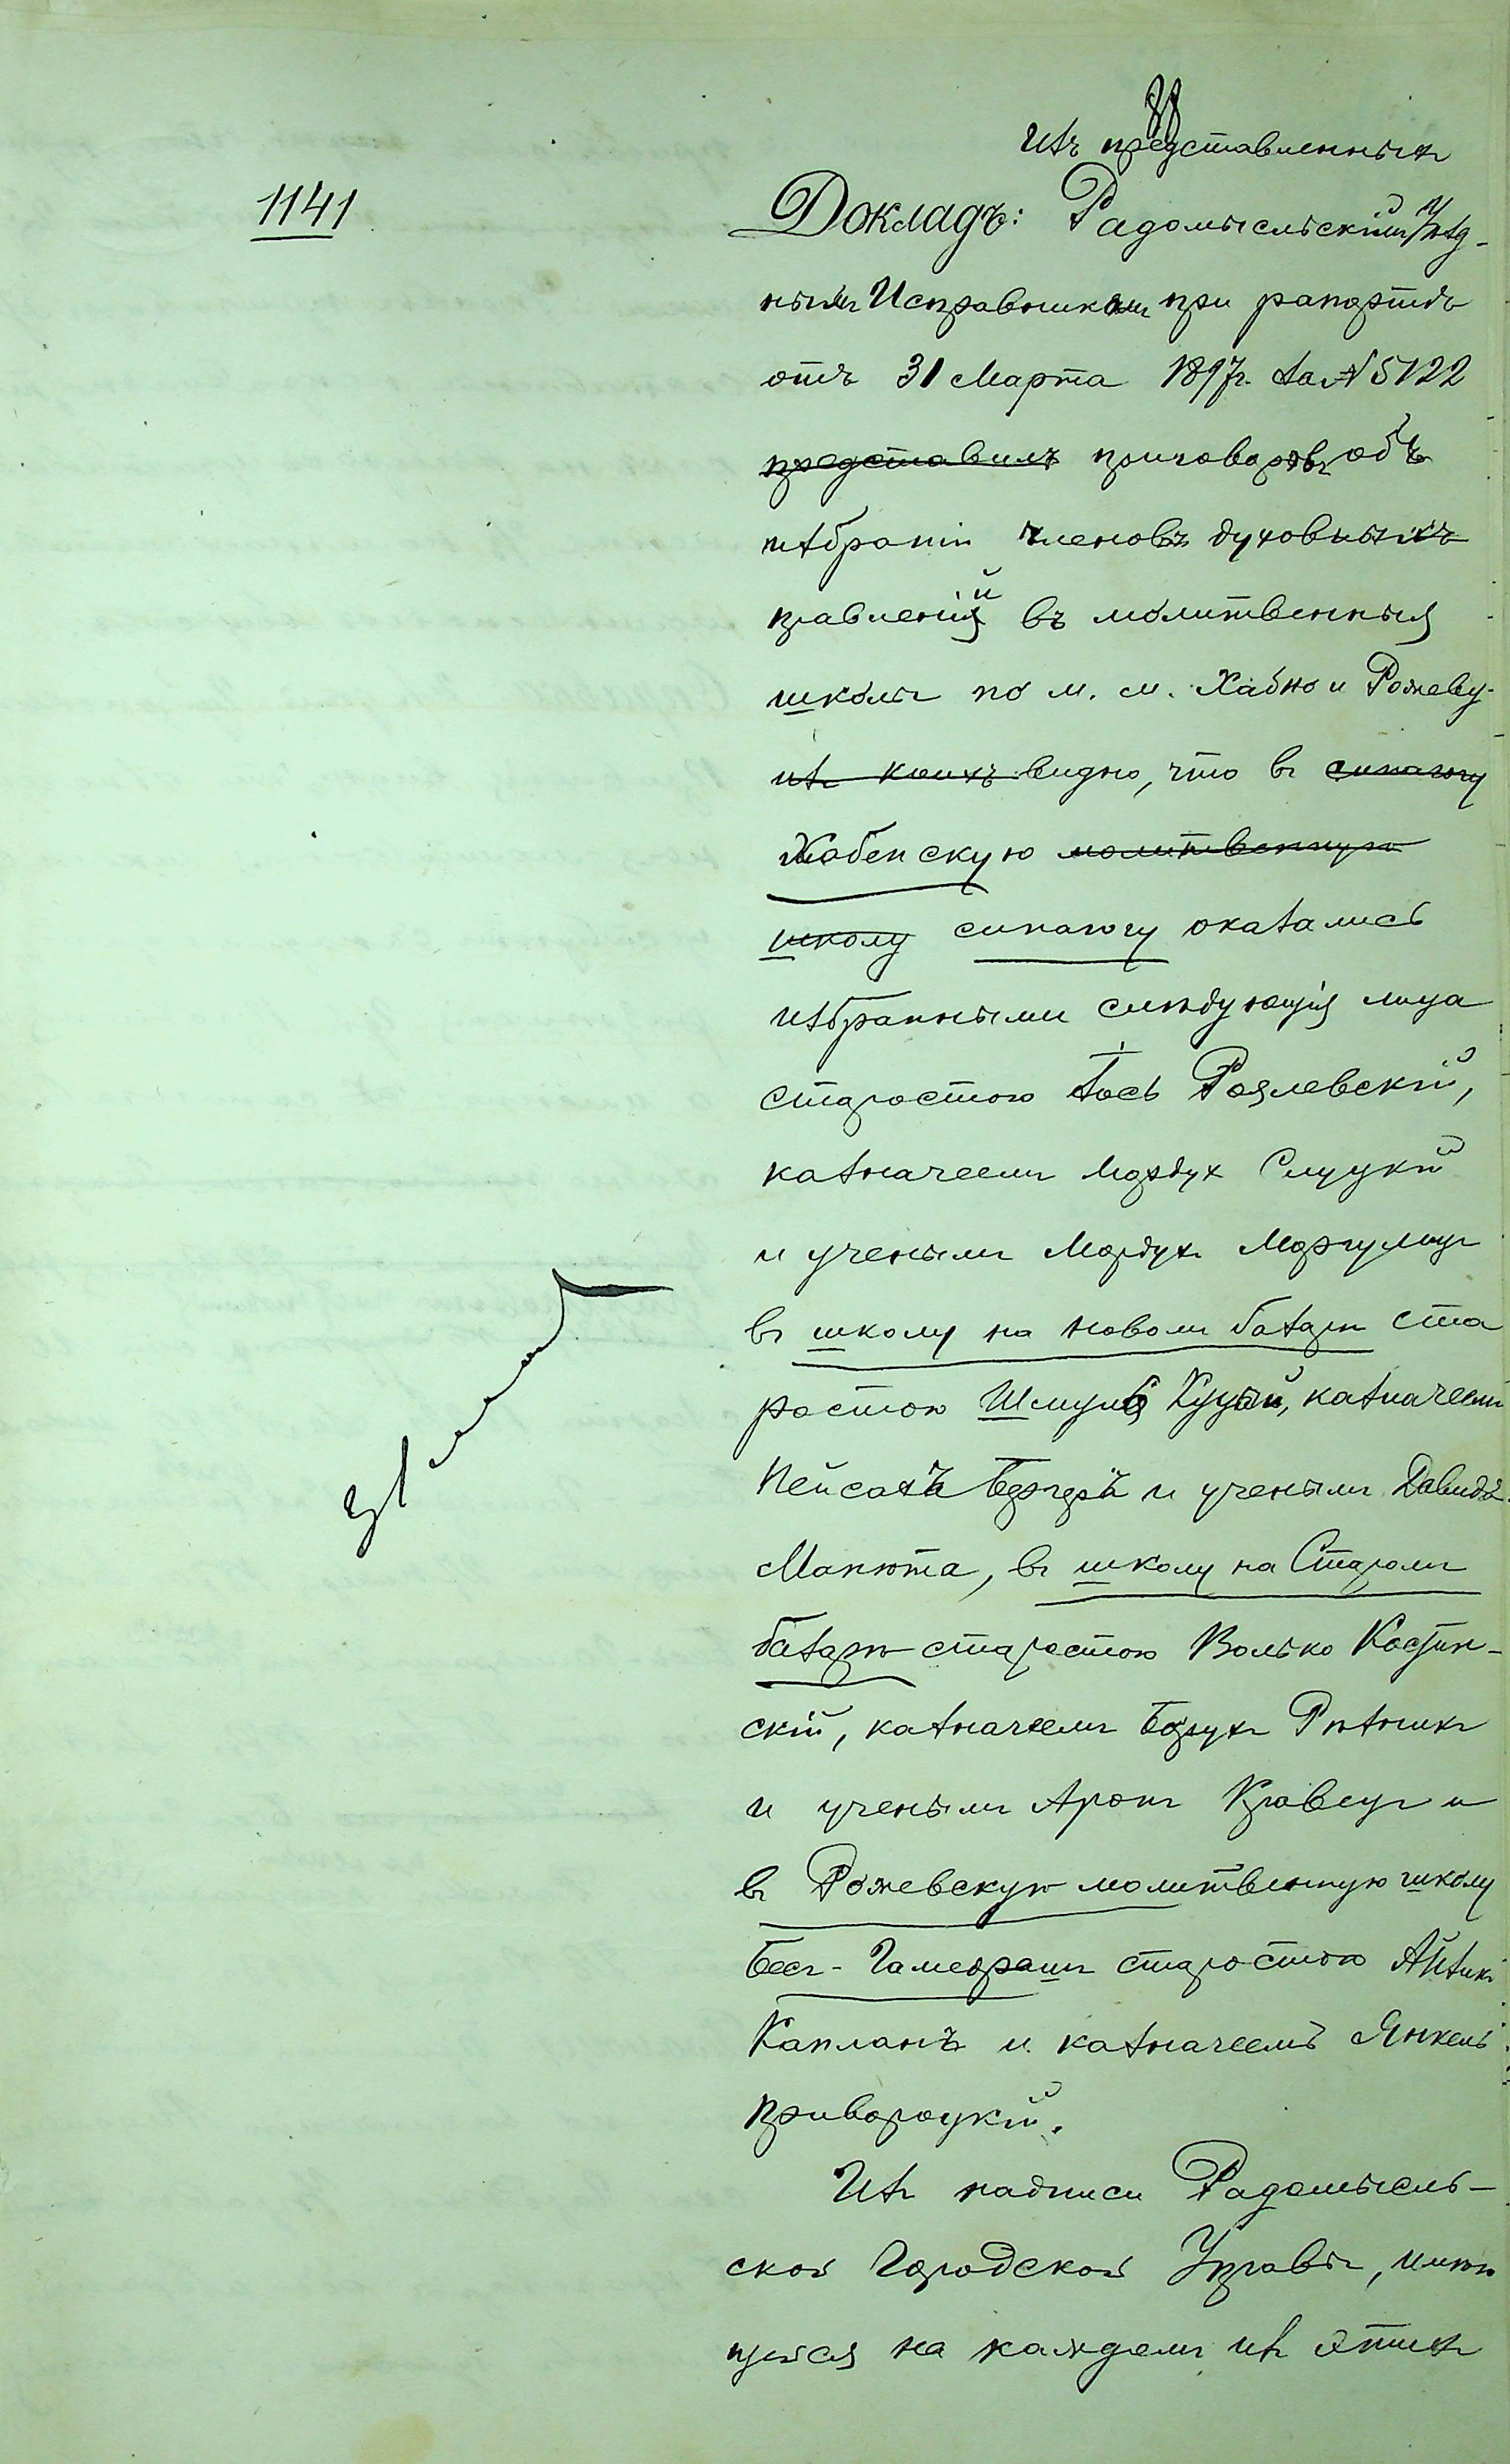 Изъ представленныхъ
1141
Докладъ: Радомысльскимъ Уѣзд-
нымъ Исправникомъ при рапортѣ
отъ 31 Марта 1897г. за № 5122
представилъ приговоровъ объ
избраніи членовъ духовныхъ
правленій въ молитвенныя
школы по м. м. Хабно и Рожеву
изъ коихъ видно, что въ синагогу
Хабенскую молитвенную
школу синагогу оказались
избранными слѣдующія лица
старостою Іось Роялевскій,
казначеемъ Мордух Слуцкій
и ученымъ Мордухъ Моргулицъ
въ школу на новомъ базарѣ ста
ростою Шмуль Куцый, казначеемъ
Пейсахъ Бергеръ и ученымъ Давидъ
Манюта, въ школу на Старомъ
базарѣ старостою Волько Костин-
скій, казначеемъ Борухъ Рѣзникъ
и ученымъ Аронъ Кравецъ и
въ Рожевскую молитвенную школу
Бесъ-Гамедрашъ старостою Айзикъ
Капланъ и казначеемъ Янкель
Привороцкій.
Изъ надписи Радомысль-
ской Городской Управы, имѣю
щейся на каждомъ изъ этихъ